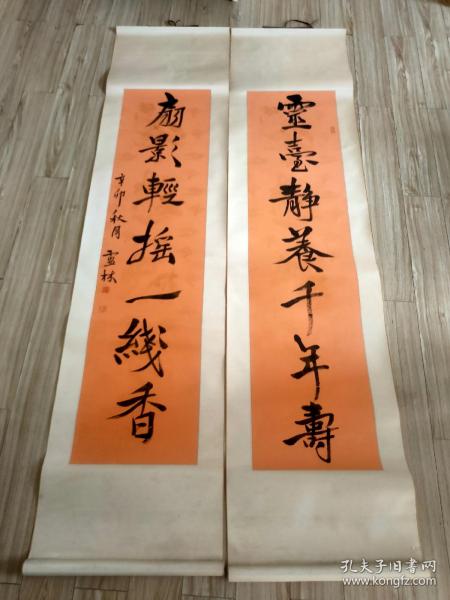 靈臺静養千年壽
扇影輕摇一綫香
辛卯秋月
孔夫子旧书网
www.kongfz.com